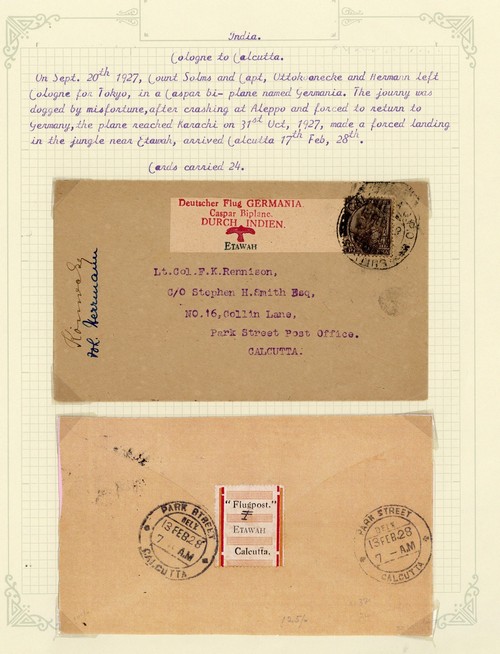 India.
Cologne to Calcutta.
On Sept. 20th 1927, Count Solms and Capt, Uttokoenecke and Hermann left
Cologne for Tokyo, in a Caspar bi- plane named Germania. The journy was
dogged by misfortune,after crashing at Aleppo and forced to return to
Germany,the plane reached Karachi on 31st Oct, 1927, made a forced landing
in the jungle near Etawah, arrived Calcutta 17th Feb, 28th.
Cards carried 24.
Deutscher Flug GERMANIA.
Caspar Biplane.
DURCH INDIEN.
ETAWAH
Lt.Col.F.K.Rennison,
C/O Stephen H.Smith Esq,
NO.16,Collin Lane,
Park Street Post Office.
CALCUTTA.
Joh. Herrmann
PARK STREET
DELY.
13 FEB 28
7 - AM
CALCUTTA
"Flugpost."
ETAWAH
Calcutta.
PARK STREET
DELY.
13 FEB 28
7 - AM
CALCUTTA